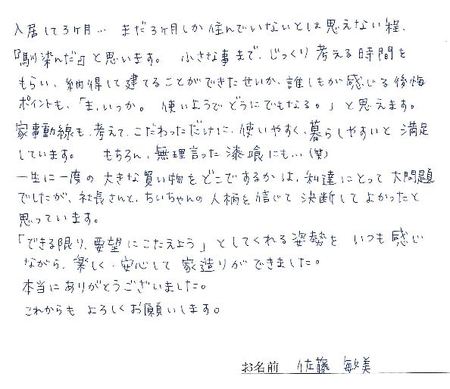 入居して3ヶ月… まだ3ヶ月しか住んでいないとは思えない程、
『馴染んだ』と思います。 小さな事まで、じっくり考える時間を
もらい、納得して建てることができたせいか、誰しもが感じる後悔
ポイントも、「ま、いっか。使いようでどうにでもなる。」と思えます。
家事動線も、考えて、こだわっただけに、使いやすく、暮らしやすいと満足
しています。 もちろん、無理言った漆喰にも…(笑)
一生に一度の大きな買い物をどこでするかは、私達にとって大問題
でしたが、社長さんと、ちいちゃんの人柄を信じて決断してよかったと
思っています。
「できる限り、要望にこたえよう」としてくれる姿勢をいつも感じ
ながら、楽しく、安心して家造りができました。
本当にありがとうございました。
これからもよろしくお願いします。
お名前 佐藤 敏美